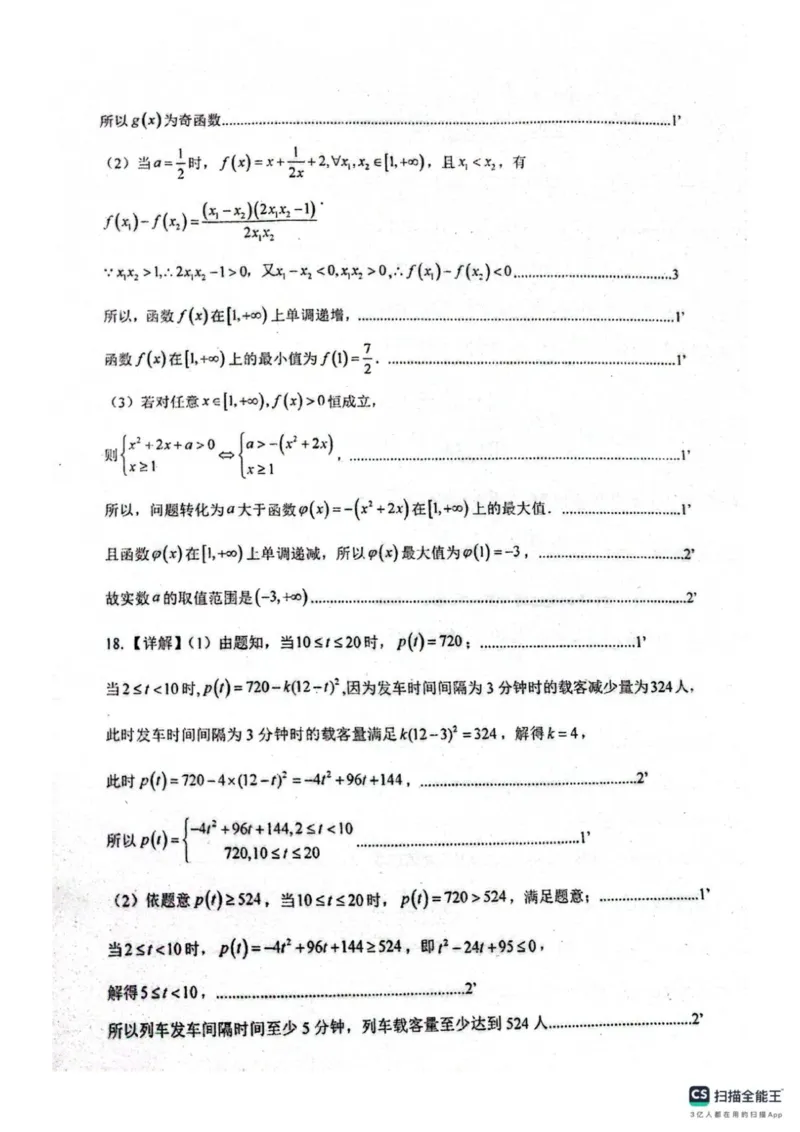 所以g(x)为奇函数..........1'
（2）当a=1/2时，f(x)=x+1/(2x)+2,∀x₁,x₂∈[1,+∞)，且x₁<x₂，有
f(x₁)-f(x₂)=(x₁-x₂)(2x₁x₂-1)/(2x₁x₂).
∵x₁x₂>1,∴2x₁x₂-1>0，又x₁-x₂<0,x₁x₂>0,∴f(x₁)-f(x₂)<0..........3
所以，函数f(x)在[1,+∞)上单调递增，..........1'
函数f(x)在[1,+∞)上的最小值为f(1)=7/2．..........1'
（3）若对任意x∈[1,+∞),f(x)>0恒成立，
则{x²+2x+a>0, x≥1 ⇔ {a>-(x²+2x), x≥1，..........1'
所以，问题转化为a大于函数φ(x)=-(x²+2x)在[1,+∞)上的最大值．..........1'
且函数φ(x)在[1,+∞)上单调递减，所以φ(x)最大值为φ(1)=-3，..........2'
故实数a的取值范围是(-3,+∞)..........2'
18.【详解】（1）由题知，当10≤t≤20时，p(t)=720；..........1'
当2≤t<10时,p(t)=720-k(12-t)²,因为发车时间间隔为3分钟时的载客减少量为324人，
此时发车时间间隔为3分钟时的载客量满足k(12-3)²=324，解得k=4，
此时p(t)=720-4×(12-t)²=-4t²+96t+144，..........2'
所以p(t)={-4t²+96t+144,2≤t<10
720,10≤t≤20..........1'
（2）依题意p(t)≥524，当10≤t≤20时，p(t)=720>524，满足题意；..........1'
当2≤t<10时，p(t)=-4t²+96t+144≥524，即t²-24t+95≤0，
解得5≤t<10，..........2'
所以列车发车间隔时间至少5分钟，列车载客量至少达到524人..........2'
CS 扫描全能王
3亿人都在用的扫描App